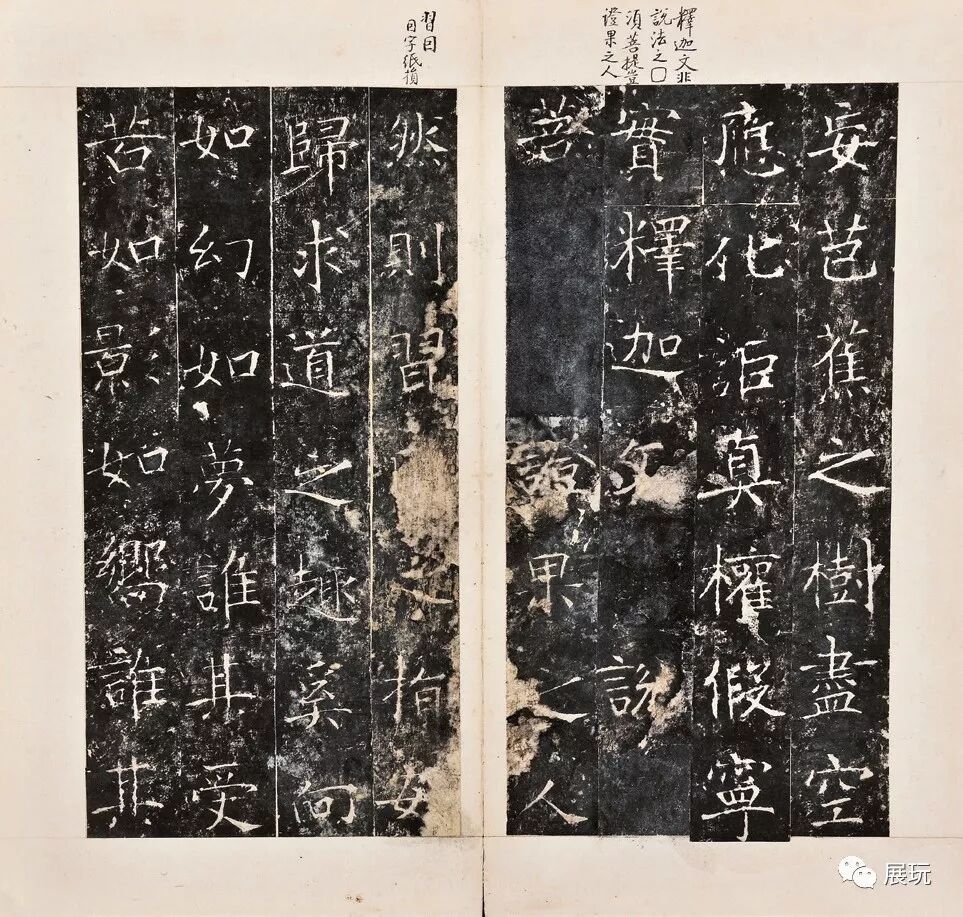 釋迦文非
說法之□
須菩提豈
證果之人
妄芭蕉之樹盡空
應化詎真權假寧
實釋迦文說
菩證果之人
習因
因字紙損
然則習之指安
歸求道之趣奚向
如幻如夢誰其受
苦如影如響誰其
展玩